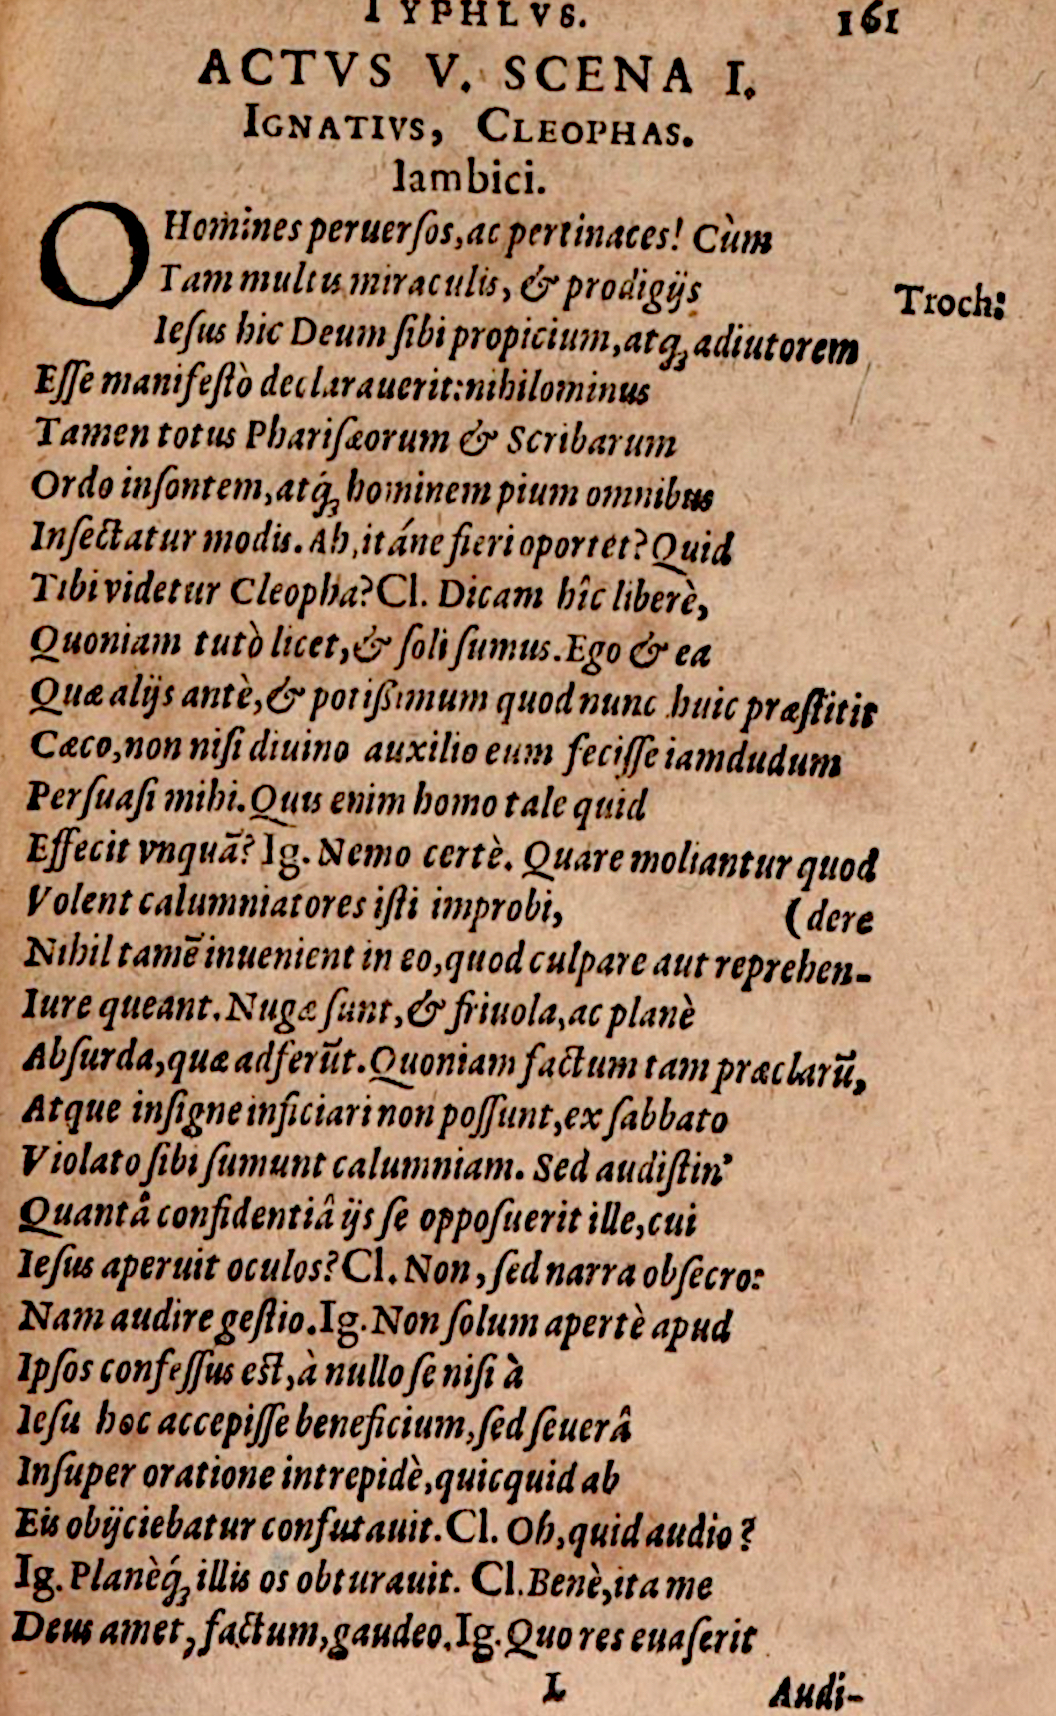 TYPHLVS. 161
ACTVS V. SCENA I.
IGNATIVS, CLEOPHAS.
Iambici.
O Homines peruerſos, ac pertinaces! Cùm
Tam multis miraculis, & prodigijs
Troch:
Ieſus hic Deum ſibi propicium, atq; adiutorem
Eſſe manifeſtò declarauerit: nihilominus
Tamen totus Phariſæorum & Scribarum
Ordo inſontem, atq́; hominem pium omnibus
Inſectatur modis. Ah, itáne fieri oportet? Quid
Tibi videtur Cleopha? Cl. Dicam hîc liberè,
Quoniam tutò licet, & ſoli ſumus. Ego & ea
Quæ alijs antè, & potißimum quod nunc huic præſtitit
Cæco, non niſi diuino auxilio eum feciſſe iamdudum
Perſuaſi mihi. Quis enim homo tale quid
Effecit vnquā? Ig. Nemo certè. Quare moliantur quod
Volent calumniatores iſti improbi, (dere
Nihil tamē inuenient in eo, quod culpare aut reprehen-
Iure queant. Nugæ ſunt, & friuola, ac planè
Abſurda, quæ adferūt. Quoniam factum tam præclarū,
Atque inſigne inficiari non poſſunt, ex ſabbato
Violato ſibi ſumunt calumniam. Sed audiſtin'
Quantâ confidentiâ ijs ſe oppoſuerit ille, cui
Ieſus aperuit oculos? Cl. Non, ſed narra obſecro:
Nam audire geſtio. Ig. Non ſolum apertè apud
Ipſos confeſſus eſt, à nullo ſe niſi à
Ieſu hoc accepiſſe beneficium, ſed ſeuerâ
Inſuper oratione intrepidè, quicquid ab
Eis obijciebatur confutauit. Cl. Oh, quid audio?
Ig. Planèq́; illis os obturauit. Cl. Benè, ita me
Deus amet, factum, gaudeo. Ig. Quo res euaſerit
L Audi-